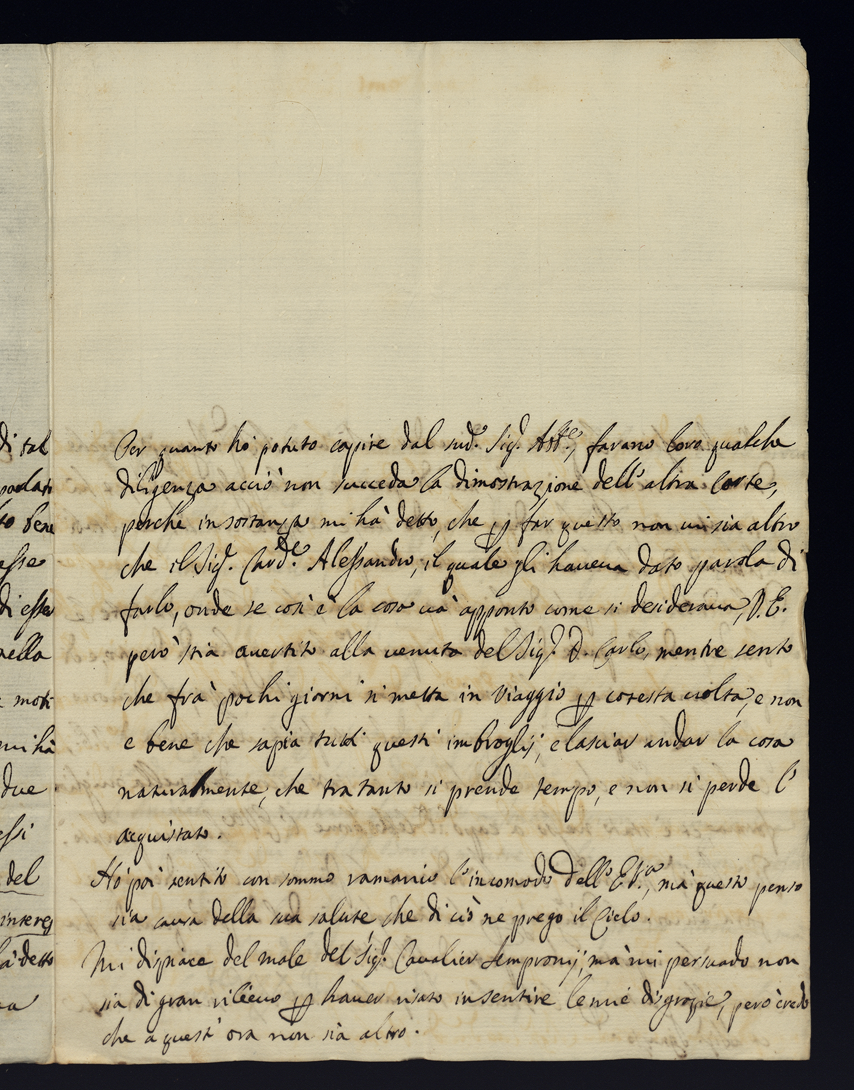 di tal
parlato
to bene
esse
di esser
nella
e moti
mi hà
due
essi
del
interes
hà detto
Per quanto hò potuto capire dal sud.º Sig.r Att.e, farano loro qualche
diligenza acciò non succeda la dimostrazione dell'altra Corte,
perche in sostanza mi hà detto, che p far questo non vi sia altro
che il Sig.r Card.le Alessandro, il quale gli haveva dato parola di
farlo, onde se così è la cosa và apponto come si desiderava, V.E.
però stia avertito alla venuta del Sig.r D. Carlo, mentre sento
che frà pochi giorni si metta in viaggio p cotesta volta, e non
e bene che sapia tutti questi imbroglij, e lasciar andar la cosa
naturalmente, che tra tanto si prende tempo, e non si perde l'
acquistato.
Hò poi sentito con sommo ramarico l'incomodo dell'E.V.ra, mà questo penso
sia causa della sua salute che di ciò ne prego il Cielo.
Mi dispiace del male del Sig.r Cavalier Sempronij, mà mi persuado non
sia di gran rilievo p haver riso in sentire le mie disgrazie, però credo
che a quest'ora non sia altro.